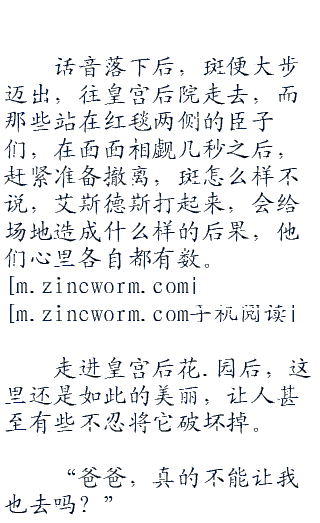 话音落下后，斑便大步
迈出，往皇宫后院走去，而
那些站在红毯两侧的臣子
们，在面面相觑几秒之后，
赶紧准备撤离，斑怎么样不
说，艾斯德斯打起来，会给
场地造成什么样的后果，他
们心里各自都有数。
[m.zincworm.com|
[m.zincworm.com手机阅读|
走进皇宫后花.园后，这
里还是如此的美丽，让人甚
至有些不忍将它破坏掉。
“爸爸，真的不能让我
也去吗？”